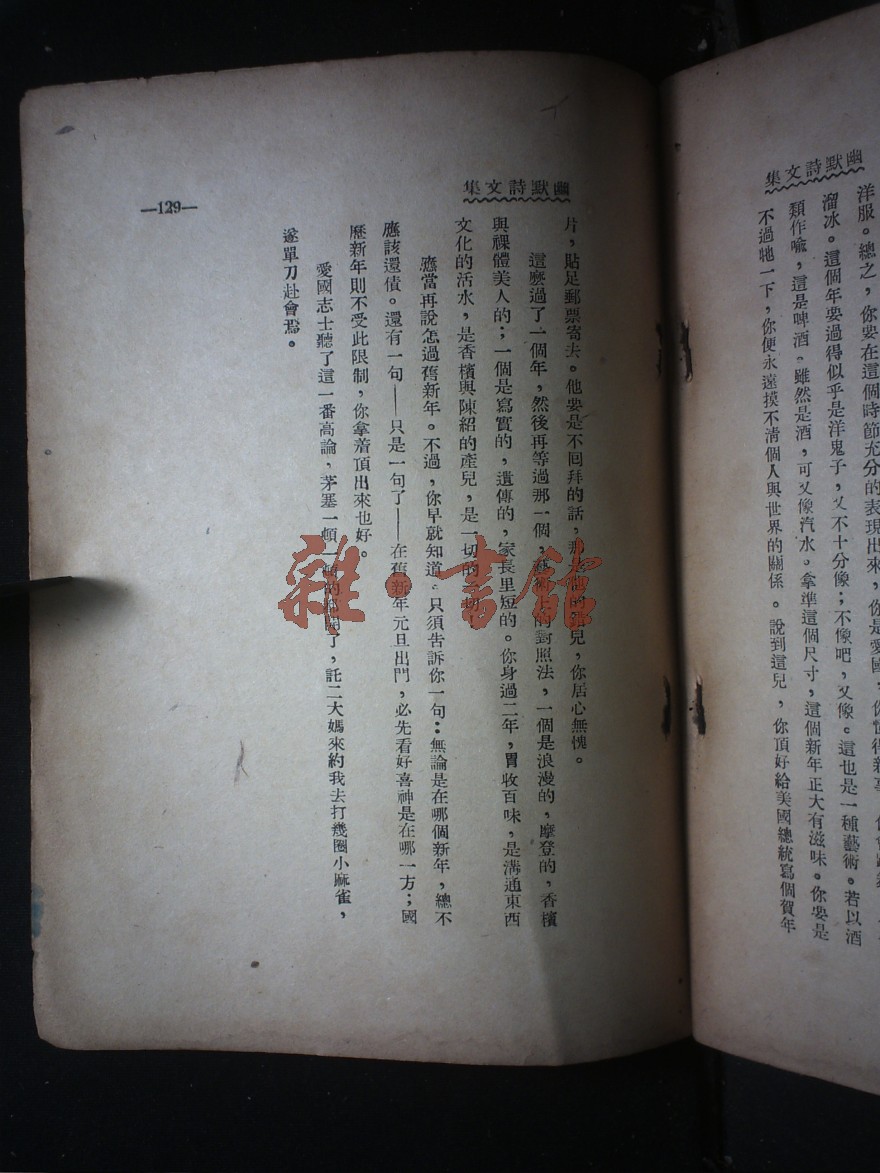 幽默詩文集
洋服。總之,你要在這個時節充分的表現出來,你是愛國,你懂得新事,你會
溜冰。這個年要過得似乎是洋鬼子,又不十分像;不像吧,又像。這也是一種藝術。若以酒
類作喻,這是啤酒。雖然是酒,可又像汽水。拿準這個尺寸,這個新年正大有滋味。你要是
不過牠一下,你便永遠摸不淸個人與世界的關係。說到這兒,你頂好給美國總統寫個賀年
幽默詩文集
片,貼足郵票寄去。他要是不回拜的話,那是他的錯兒,你居心無愧。
這麼過了一個年,然後再等過那一個,藝術上的對照法,一個是浪漫的,摩登的,香檳
與裸體美人的;一個是寫實的,遺傳的,家長里短的。你身過二年,胃收百味,是溝通東西
文化的活水,是香檳與陳紹的產兒,是一切的一切!
應當再說怎過舊新年。不過,你早就知道。只須告訴你一句:無論是在哪個新年,總不
應該還債。還有一句——只是一句了——在舊新年元旦出門,必先看好喜神是在哪一方;國
歷新年則不受此限制,你拿着頂出來也好。
愛國志士聽了這一番高論,茅塞一頓一頓的都開了,託二大媽來約我去打幾圈小麻雀,
遂單刀赴會焉。
—129—
雜·書館